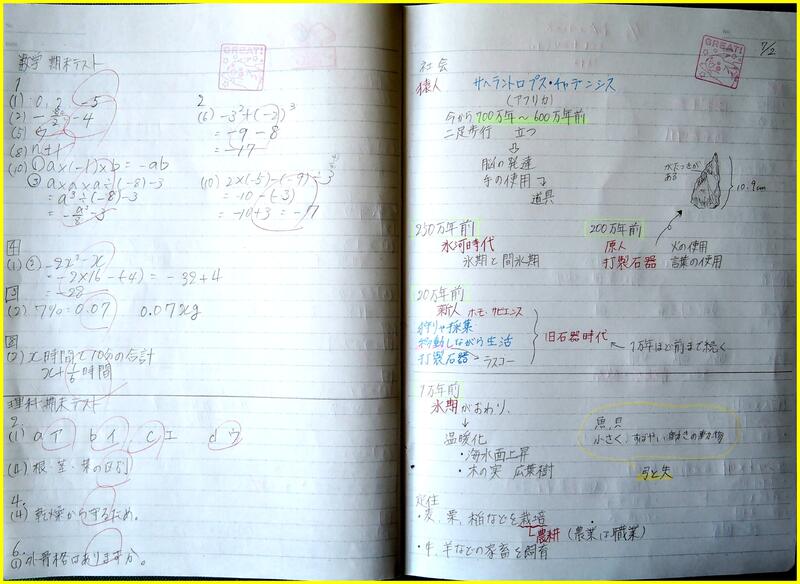 数学 期末テスト
1
(1) 0, 2, -5
(2) -4
(5)
(8) n+1
(10) ① a×(-1)×b = -ab
② a×a×a÷(-8)-3
= a³÷(-8)-3
= -a³/8-3
2
(6) -3²+(-2)³
= -9-8
= -17
(10) 2×(-5)-(-9)÷3
= -10-(-3)
= -10+3 =
4
(1) ② -2x²-x
= -32+4
= -28
(2) 7%=0.07 0.07xg
(2) x時間と10分の合計
x+1/6時間
理科 期末テスト
2.
(1) a ア b イ c エ d ウ
(4) 根・茎・葉の区別
4.
(4) 乾燥から守るため。
6.
① 外骨格はありますか。
GREAT!
GREAT!
7/2
社会
猿人 サヘラントロプス・チャデンシス
(アフリカ)
今から700万年～600万年前
二足歩行 立つ
⇩
脳の発達
手の使用
道具
水たっさが
ある
10.9cm
250万年前
氷河時代
氷期と間氷期
200万年前
原人 火の使用
打製石器 言葉の使用
20万年前
新人 ホモ・サピエンス
狩りや採集
移動しながら生活
打製石器 ラスコー
旧石器時代 ← 1万年ほど前まで続く
1万年前
氷期がおわり、
↓
温暖化
・海水面上昇
・木の実 広葉樹
魚、貝
小さく、すばやい動きの動物
弓と矢
定住
・麦、粟、稲などを栽培
農耕 (農業は職業)
・牛、羊などの家畜を飼育